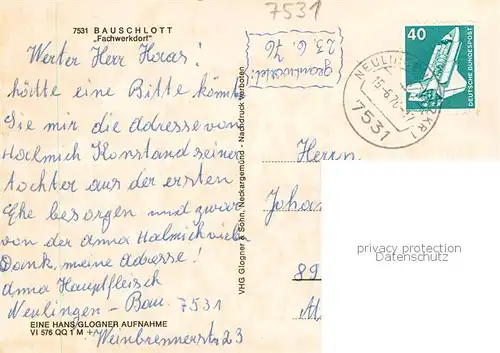 7531 BAUSCHLOTT
„Fachwerkdorf"
7531
Werter Herr Haas!
hätte eine Bitte könnt
Sie mir die adresse von
Halmich Konstand seiner
tochter aus der ersten
Ehe besorgen und zwar
von der anna Halmich viele
Dank, meine adresse!
anna Hauptfleisch
Neulingen - Bau. 7531
Weinbrennerstr 23
EINE HANS GLOGNER AUFNAHME
VI 576 QQ 1 M +
VHG Glogner & Sohn, Neckargemünd - Nachdruck verboten
geantwortet!
23.6.76
40
DEUTSCHE BUNDESPOST
7531
Herrn
Joha
89
privacy protection
Datenschutz